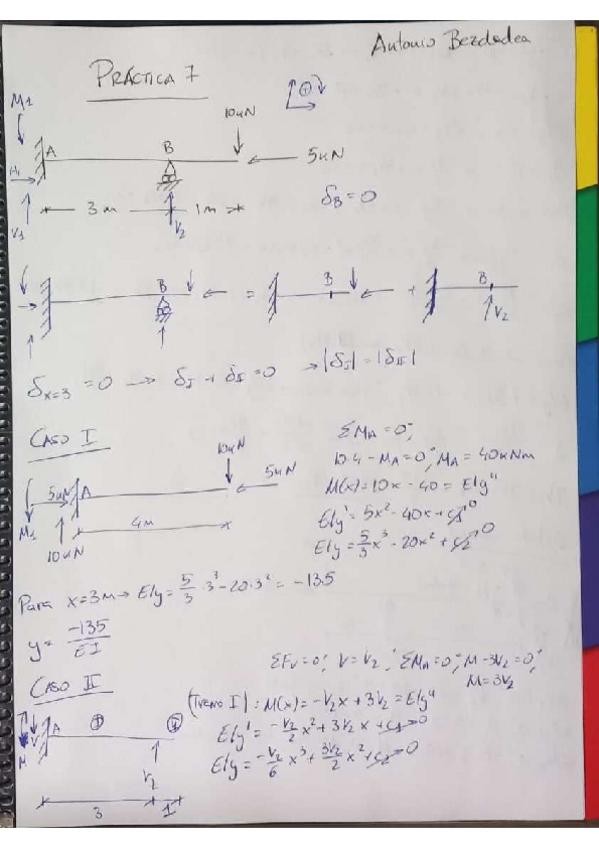 Antonio Bezdedea
PRÁCTICA 7
M1
10kN
A
B
5kN
H1
3m
1m
V1
V2
δB = 0
B = B + B
V2
δx=3 = 0 → δI + δII = 0 → |δI| = |δII|
CASO I
10kN
5kN
5kN
A
M1
4m
10kN
ΣMA = 0;
10·4 - MA = 0; MA = 40kNm
M(x) = 10x - 40 = EIy''
EIy' = 5x² - 40x + C1→0
EIy = 5/3 x³ - 20x² + C2→0
Para x = 3m → EIy = 5/3 · 3³ - 20·3² = -135
y = -135/EI
ΣFV = 0; V = V2; ΣMA = 0; M - 3V2 = 0;
M = 3V2
CASO II
(TRAMO I): M(x) = -V2x + 3V2 = EIy''
EIy' = -V2/2 x² + 3V2x + C1→0
EIy = -V2/6 x³ + 3V2/2 x² + C2→0
A
V
M
V2
3
1